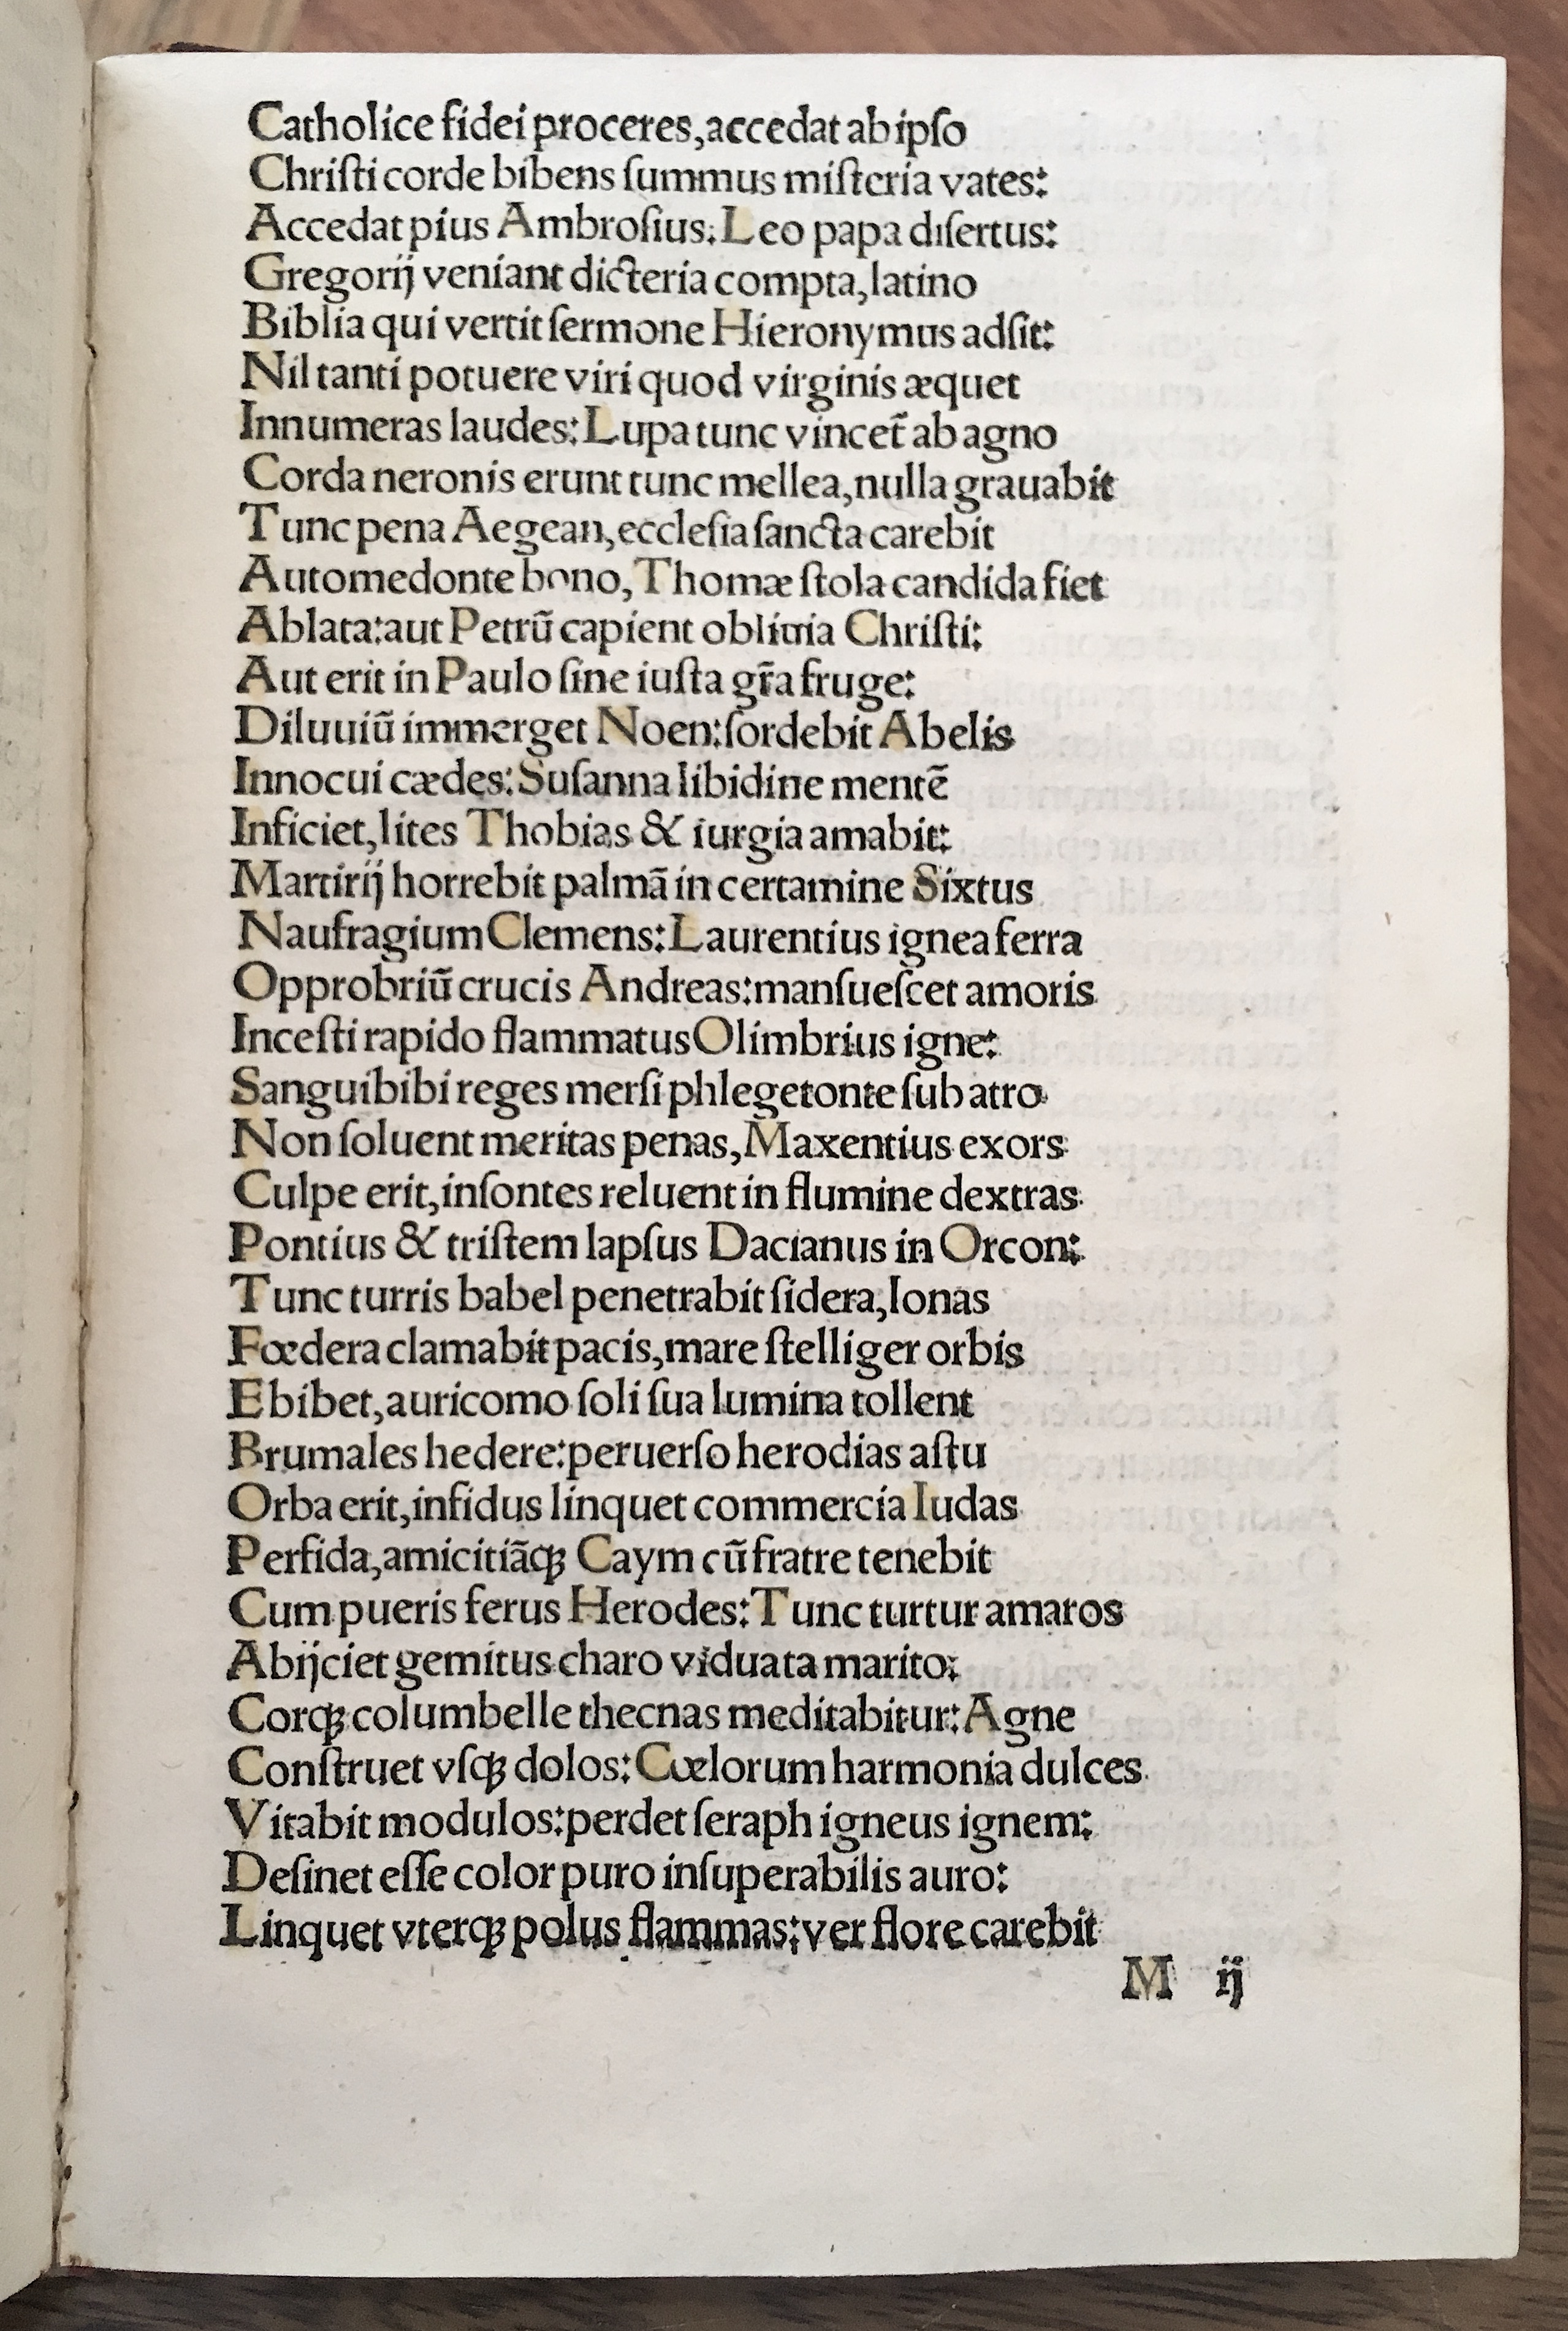 Catholice fidei proceres,accedat ab ipſo
Chriſti corde bibens ſummus miſteria vates:
Accedat pius Ambroſius: Leo papa diſertus:
Gregorij veniant dicteria compta,latino
Biblia qui vertit ſermone Hieronymus adſit:
Nil tanti potuere viri quod virginis æquet
Innumeras laudes: Lupa tunc vincet̃ ab agno
Corda neronis erunt tunc mellea,nulla grauabit
Tunc pena Aegean,eccleſia ſancta carebit
Automedonte bono,Thomæ ſtola candida fiet
Ablata:aut Petrū capient obliuia Chriſti:
Aut erit in Paulo ſine iuſta gr̃a fruge:
Diluuiū immerget Noen:ſordebit Abelis
Innocui cædes:Suſanna libidine mentē
Inficiet,lites Thobias & iurgia amabit:
Martirij horrebit palmā in certamine Sixtus
Naufragium Clemens:Laurentius ignea ferra
Opprobriū crucis Andreas:manſueſcet amoris
Inceſti rapido flammatus Olimbrius igne:
Sanguibibi reges merſi phlegetonte ſub atro
Non ſoluent meritas penas,Maxentius exors
Culpe erit,inſontes reluent in flumine dextras
Pontius & triſtem lapſus Dacianus in Orcon:
Tunc turris babel penetrabit ſidera,Ionas
Fœdera clamabit pacis,mare ſtelliger orbis
Ebibet,auricomo ſoli ſua lumina tollent
Brumales hedere:peruerſo herodias aſtu
Orba erit,infidus linquet commercia Iudas
Perfida,amicitiāqꝫ Caym cū fratre tenebit
Cum pueris ferus Herodes:Tunc turtur amaros
Abijciet gemitus charo viduata marito:
Corqꝫ columbelle thecnas meditabitur:Agne
Conſtruet vſqꝫ dolos:Cœlorum harmonia dulces
Vitabit modulos:perdet ſeraph igneus ignem:
Deſinet eſſe color puro inſuperabilis auro:
Linquet vterqꝫ polus flammas:ver flore carebit
M ij